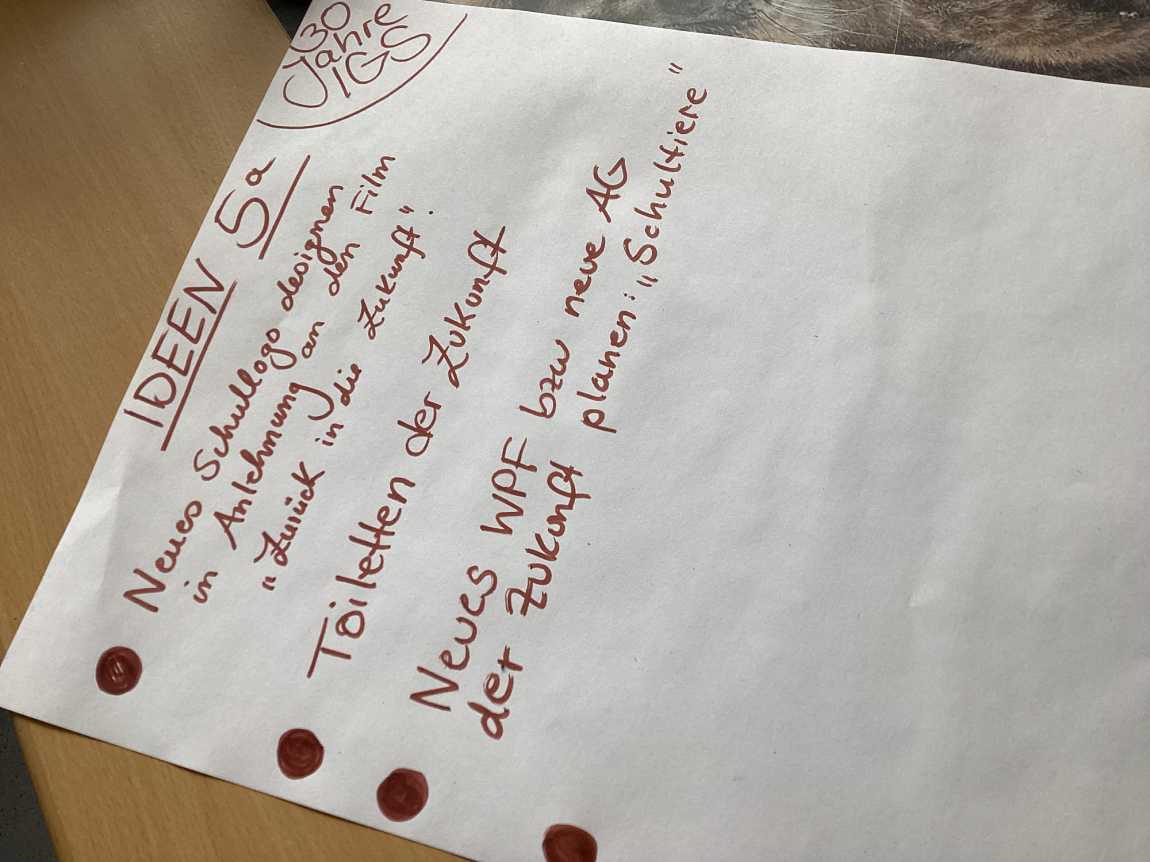 IDEEN 5a
30
Jahre
IGS
Neues Schullogo designen
in Anlehnung an den Film
"Zurück in die Zukunft".
Toiletten der Zukunft
Neues WPF bzw neue AG
der Zukunft planen: "Schultiere"